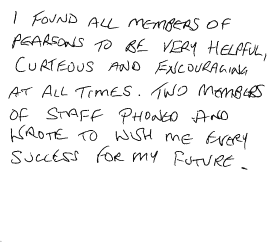 I FOUND ALL MEMBERS OF
PEARSONS TO BE VERY HELPFUL,
CURTEOUS AND ENCOURAGING
AT ALL TIMES. TWO MEMBERS
OF STAFF PHONED AND
WROTE TO WISH ME EVERY
SUCCESS FOR MY FUTURE.